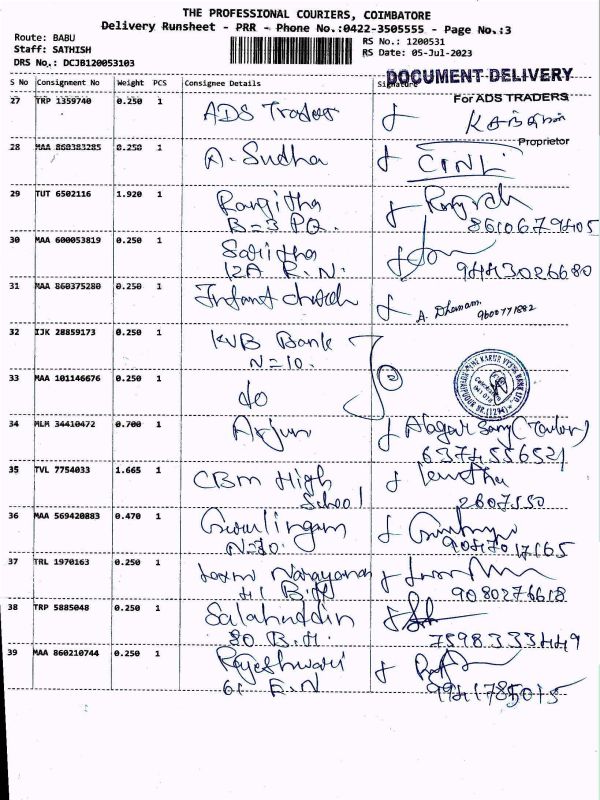 THE PROFESSIONAL COURIERS, COIMBATORE
Delivery Runsheet - PRR - Phone No.:0422-3505555 - Page No.:3
Route: BABU
Staff: SATHISH
DRS No,: DCJB120053103
RS No.: 1200531
RS Date: 05-Jul-2023
DOCUMENT DELIVERY
S No Consignment No Weight PCS Consignee Details Signature
27 TRP 1359740 0.250 1 ADS Traders
For ADS TRADERS
Proprietor
28 MAA 860383285 0.250 1 A. Sudha
29 TUT 6502116 1.920 1 Rangitha
B=3 P.Q.
8610679405
30 MAA 600053819 0.250 1 Saritha
12A R.N.
9443026680
31 MAA 860375280 0.250 1 Infant church
A. Dhanam.
9600771882
32 IJK 28859173 0.250 1 KVB Bank
N=10.
33 MAA 101146676 0.250 1 do
2
34 MLM 34410472 0.700 1 Arjun
6374556521
35 TVL 7754033 1.665 1 CBM High
School
2607550
36 MAA 569420883 0.470 1 Gurulingam
37 TRL 1970163 0.250 1 Laxmi Narayanan
41 B.H
9080276618
38 TRP 5885048 0.250 1 Salahuddin
30 B.H.
7598333449
39 MAA 860210744 0.250 1 Rajeshwari
61 E.N
9941785015